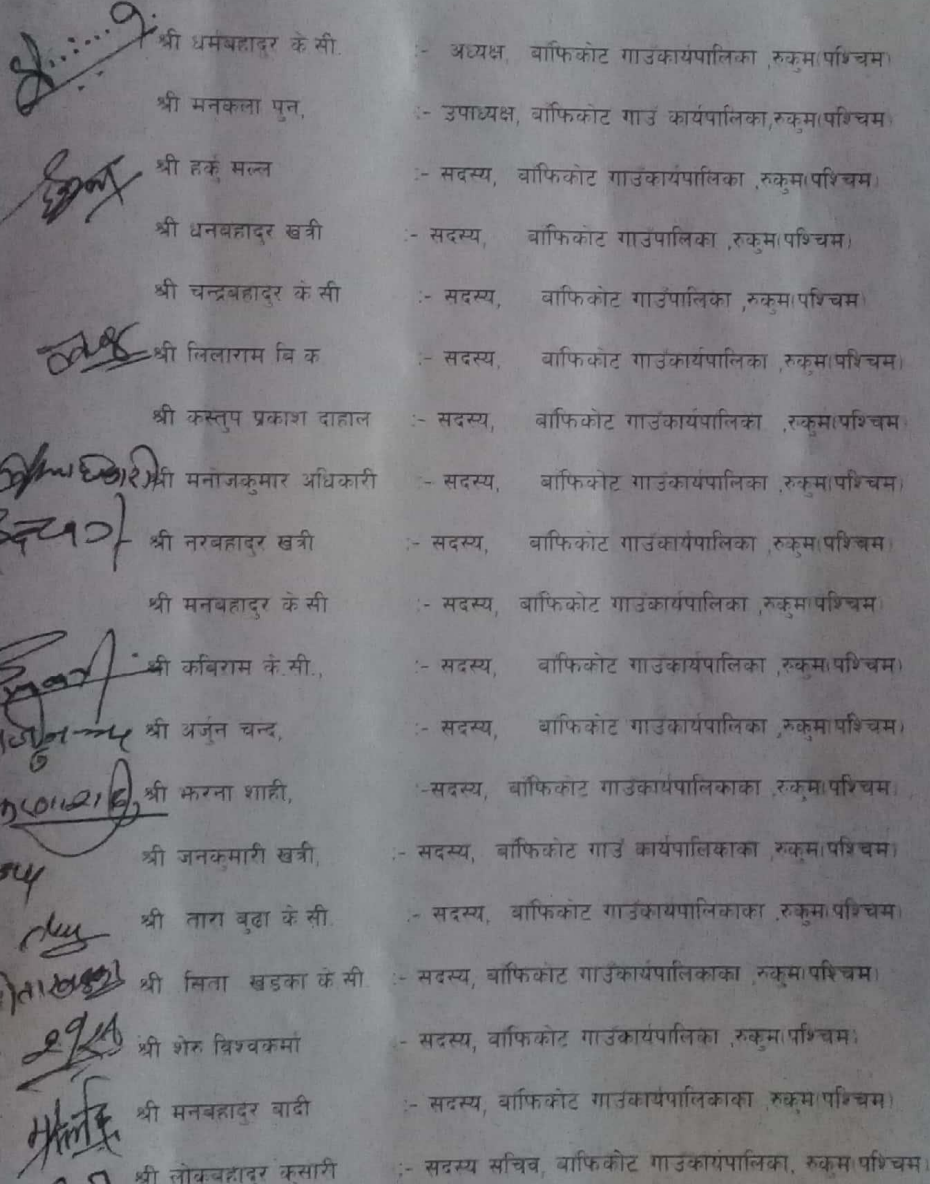 श्री धर्मबहादुर के.सी. :- अध्यक्ष, बाँफिकोट गाउँकार्यपालिका ,रुकुम(पश्चिम)
श्री मनकला पुन, :- उपाध्यक्ष, बाँफिकोट गाउँ कार्यपालिका,रुकुम(पश्चिम)
श्री हर्कु मल्ल :- सदस्य, बाँफिकोट गाउँकार्यपालिका ,रुकुम(पश्चिम)
श्री धनबहादुर खत्री :- सदस्य, बाँफिकोट गाउँपालिका ,रुकुम(पश्चिम)
श्री चन्द्रबहादुर के सी :- सदस्य, बाँफिकोट गाउँपालिका ,रुकुम(पश्चिम)
श्री लिलाराम बि क :- सदस्य, बाँफिकोट गाउँकार्यपालिका ,रुकुम(पश्चिम)
श्री कस्तुप प्रकाश दाहाल :- सदस्य, बाँफिकोट गाउँकार्यपालिका ,रुकुम(पश्चिम)
श्री मनोजकुमार अधिकारी :- सदस्य, बाँफिकोट गाउँकार्यपालिका ,रुकुम(पश्चिम)
श्री नरबहादुर खत्री :- सदस्य, बाँफिकोट गाउँकार्यपालिका ,रुकुम(पश्चिम)
श्री मनबहादुर के सी :- सदस्य, बाँफिकोट गाउँकार्यपालिका ,रुकुम(पश्चिम)
श्री कबिराम के.सी., :- सदस्य, बाँफिकोट गाउँकार्यपालिका ,रुकुम(पश्चिम)
श्री अर्जुन चन्द, :- सदस्य, बाँफिकोट गाउँकार्यपालिका ,रुकुम(पश्चिम)
श्री झरना शाही, :-सदस्य, बाँफिकोट गाउँकार्यपालिकाका ,रुकुम(पश्चिम)
श्री जनकुमारी खत्री, :- सदस्य, बाँफिकोट गाउँ कार्यपालिकाका ,रुकुम(पश्चिम)
श्री तारा बुढा के.सी. :- सदस्य, बाँफिकोट गाउँकार्यपालिकाका ,रुकुम(पश्चिम)
श्री सिता खडका के.सी. :- सदस्य, बाँफिकोट गाउँकार्यपालिकाका ,रुकुम(पश्चिम)
श्री शेरु विश्वकर्मा :- सदस्य, बाँफिकोट गाउँकार्यपालिका ,रुकुम(पश्चिम)
श्री मनबहादुर बादी :- सदस्य, बाँफिकोट गाउँकार्यपालिकाका ,रुकुम(पश्चिम)
श्री लोकबहादुर कुसारी :- सदस्य सचिव, बाँफिकोट गाउँकार्यपालिका, रुकुम(पश्चिम)